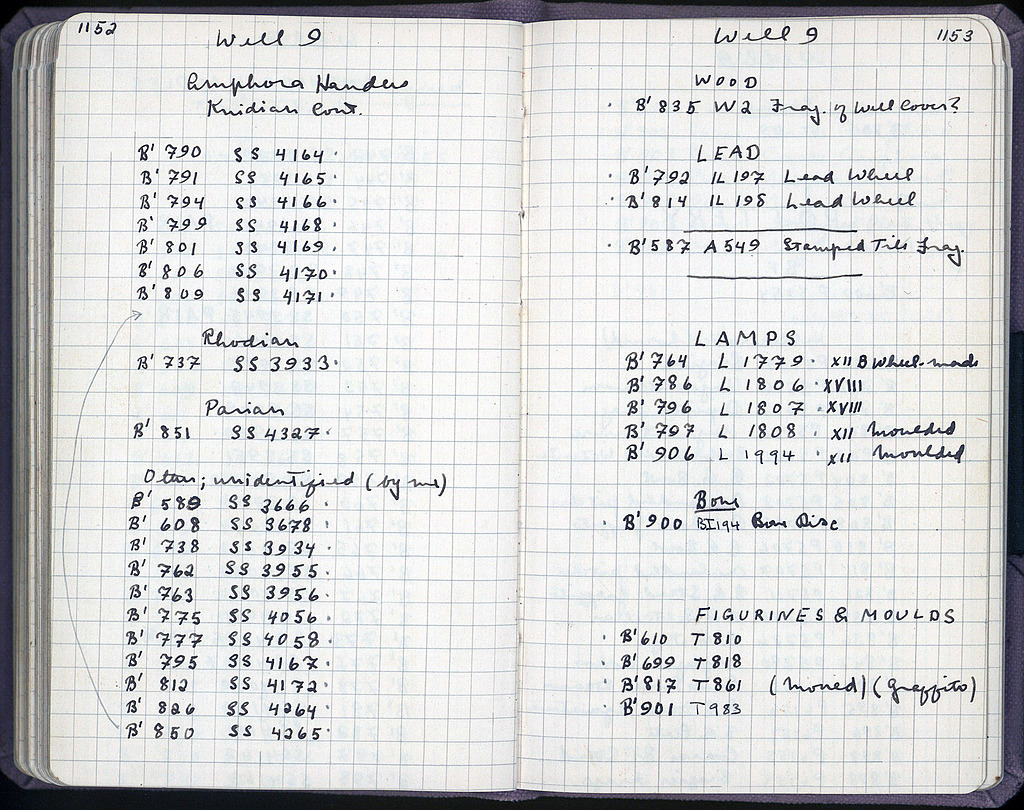 1152
Well 9
Amphora Handles
Knidian Cont.
B' 790 SS 4164·
B' 791 SS 4165·
B' 794 SS 4166·
B' 799 SS 4168·
B' 801 SS 4169·
B' 806 SS 4170·
B' 809 SS 4171·
Rhodian
B' 737 SS 3933·
Parian
B' 851 SS 4327·
Other; unidentified (by me)
B' 589 SS 3666·
B' 608 SS 3678·
B' 738 SS 3934·
B' 762 SS 3955·
B' 763 SS 3956·
B' 775 SS 4056·
B' 777 SS 4058·
B' 795 SS 4167·
B' 812 SS 4172·
B' 826 SS 4264·
B' 850 SS 4265·
Well 9
1153
WOOD
· B' 835 W2 Frag. of Well Cover?
LEAD
· B' 792 IL 197 Lead Wheel
· B' 814 IL 198 Lead Wheel
· B' 587 A 549 Stamped Tile Frag.
LAMPS
B' 764 L 1779· XII B Wheel-made
B' 786 L 1806 · XVIII
B' 796 L 1807 · XVIII
B' 797 L 1808 · XII Moulded
B' 906 L 1994 · XII Moulded
Bone
· B' 900 BI 194 Bone Disc
FIGURINES & MOULDS
· B' 610 T 810
· B' 699 T 818
· B' 817 T 861 (Mould) (Graffito)
· B' 901 T 983